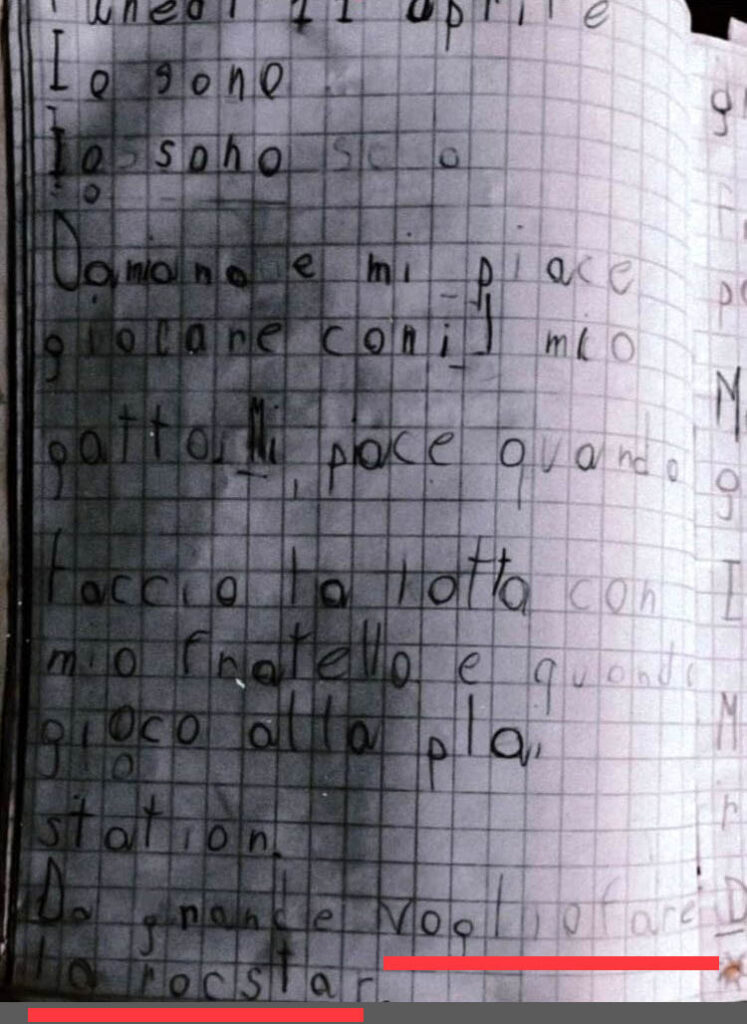 lunedì 11 aprile
Io sono
Io sono so o
Damiano e mi piace
giocare con il mio
gatto. Mi piace quando
faccio la lotta con
mio fratello e quando
gioco alla pla
station.
Da grande voglio fare
la rocstar.